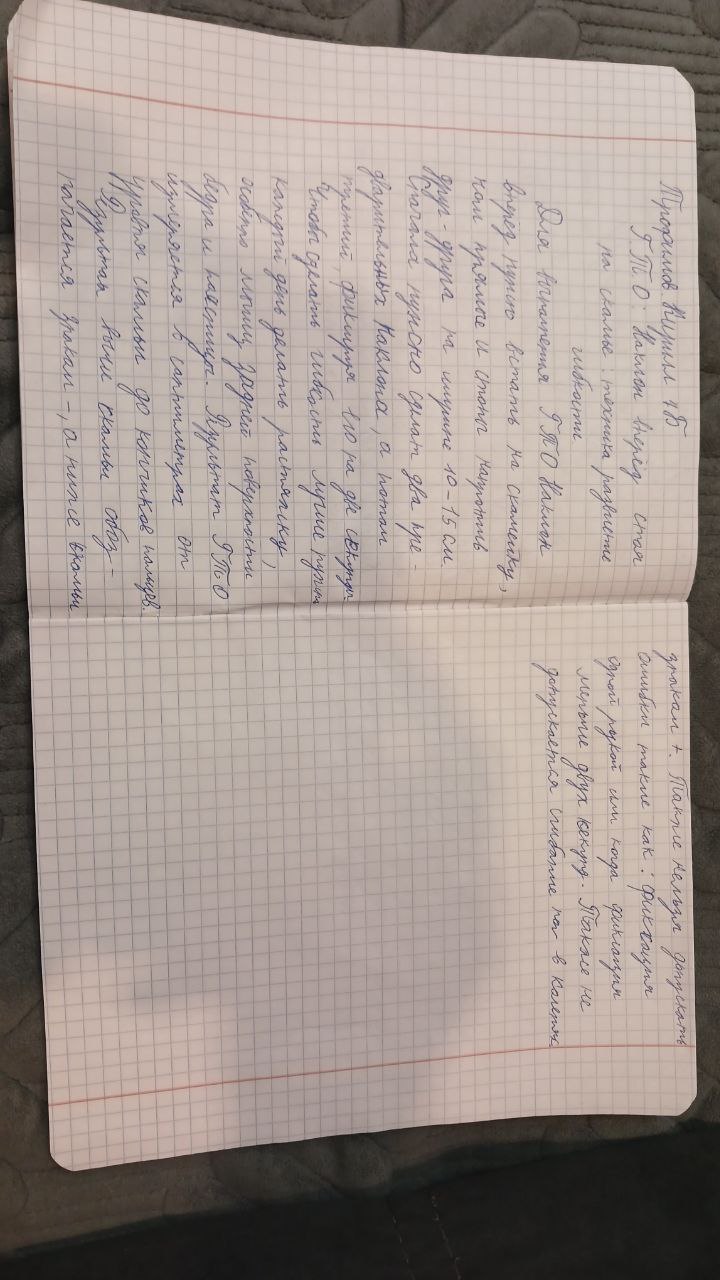 Трофимов Кирилл 7Б
ГТО: Наклон вперёд стоя
на скамье: техника развитие
гибкости
Для выполнения ГТО Наклон
вперёд нужно встать на скамейку,
ноги прямые и стопы напротив
друг-друга на ширине 10-15 см
Сначала нужно сделат два пре-
дварительных наклона, а потом
третий, фиксируя его на две секунды.
Чтобы сделать гибкость лучше нужно
каждый день делать растяжку,
особено мышц задней поверхности
бедра и поясницы. Результат ГТО
измеряется в сантиметрах от
уровня скамьи до кончиков пальцев.
Результат выше скамьи обоз-
начается знаком -, а ниже скамьи
знакам +. Также нельзя допускать
ошибки такие как: фиксация
одной рукой или когда фиксация
меньше двух секунд. Также не
допускается сгибание ног в коленях